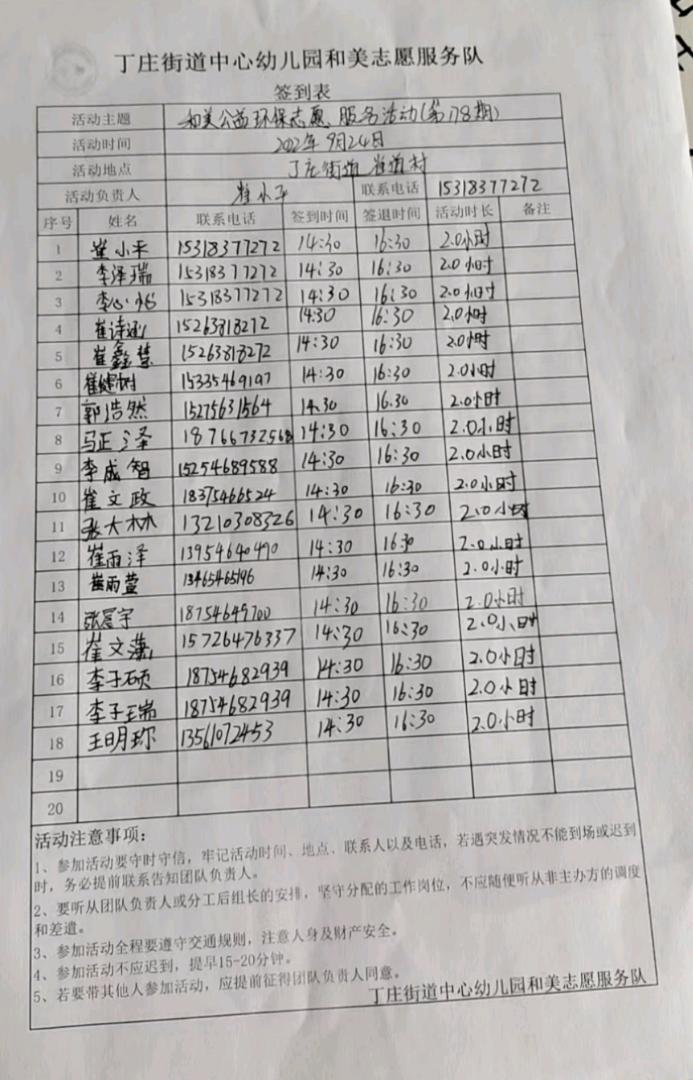 丁庄街道中心幼儿园和美志愿服务队
签到表
活动主题 和美公益环保志愿服务活动(第178期)
活动时间 2022年9月24日
活动地点 丁庄街道 崔道村
活动负责人 崔小平 联系电话 15318377272
序号 姓名 联系电话 签到时间 签退时间 活动时长 备注
1 崔小平 15318377272 14:30 16:30 2.0小时
2 李泽瑞 15318377272 14:30 16:30 2.0小时
3 李心怡 15318377272 14:30 16:30 2.0小时
4 崔诗涵 15263818272 14:30 16:30 2.0小时
5 崔鑫慧 15263818272 14:30 16:30 2.0小时
6 崔健树 15335469197 14:30 16:30 2.0小时
7 郭浩然 15275631564 14:30 16:30 2.0小时
8 马正泽 18766732568 14:30 16:30 2.0小时
9 李成智 15254689588 14:30 16:30 2.0小时
10 崔文政 18375466524 14:30 16:30 2.0小时
11 张大林 13210308326 14:30 16:30 2.0小时
12 崔雨泽 13954640490 14:30 16:30 2.0小时
13 崔雨萱 13465465196 14:30 16:30 2.0小时
14 张宸宇 18754649700 14:30 16:30 2.0小时
15 崔文藻 15726476337 14:30 16:30 2.0小时
16 李子硕 18754682939 14:30 16:30 2.0小时
17 李子瑞 18754682939 14:30 16:30 2.0小时
18 王明珎 13561072453 14:30 16:30 2.0小时
19
20
活动注意事项:
1、参加活动要守时守信,牢记活动时间、地点、联系人以及电话,若遇突发情况不能到场或迟到
时,务必提前联系告知团队负责人。
2、要听从团队负责人或分工后组长的安排,坚守分配的工作岗位,不应随便听从非主办方的调度
和差遣。
3、参加活动全程要遵守交通规则,注意人身及财产安全。
4、参加活动不应迟到,提早15-20分钟。
5、若要带其他人参加活动,应提前征得团队负责人同意。
丁庄街道中心幼儿园和美志愿服务队